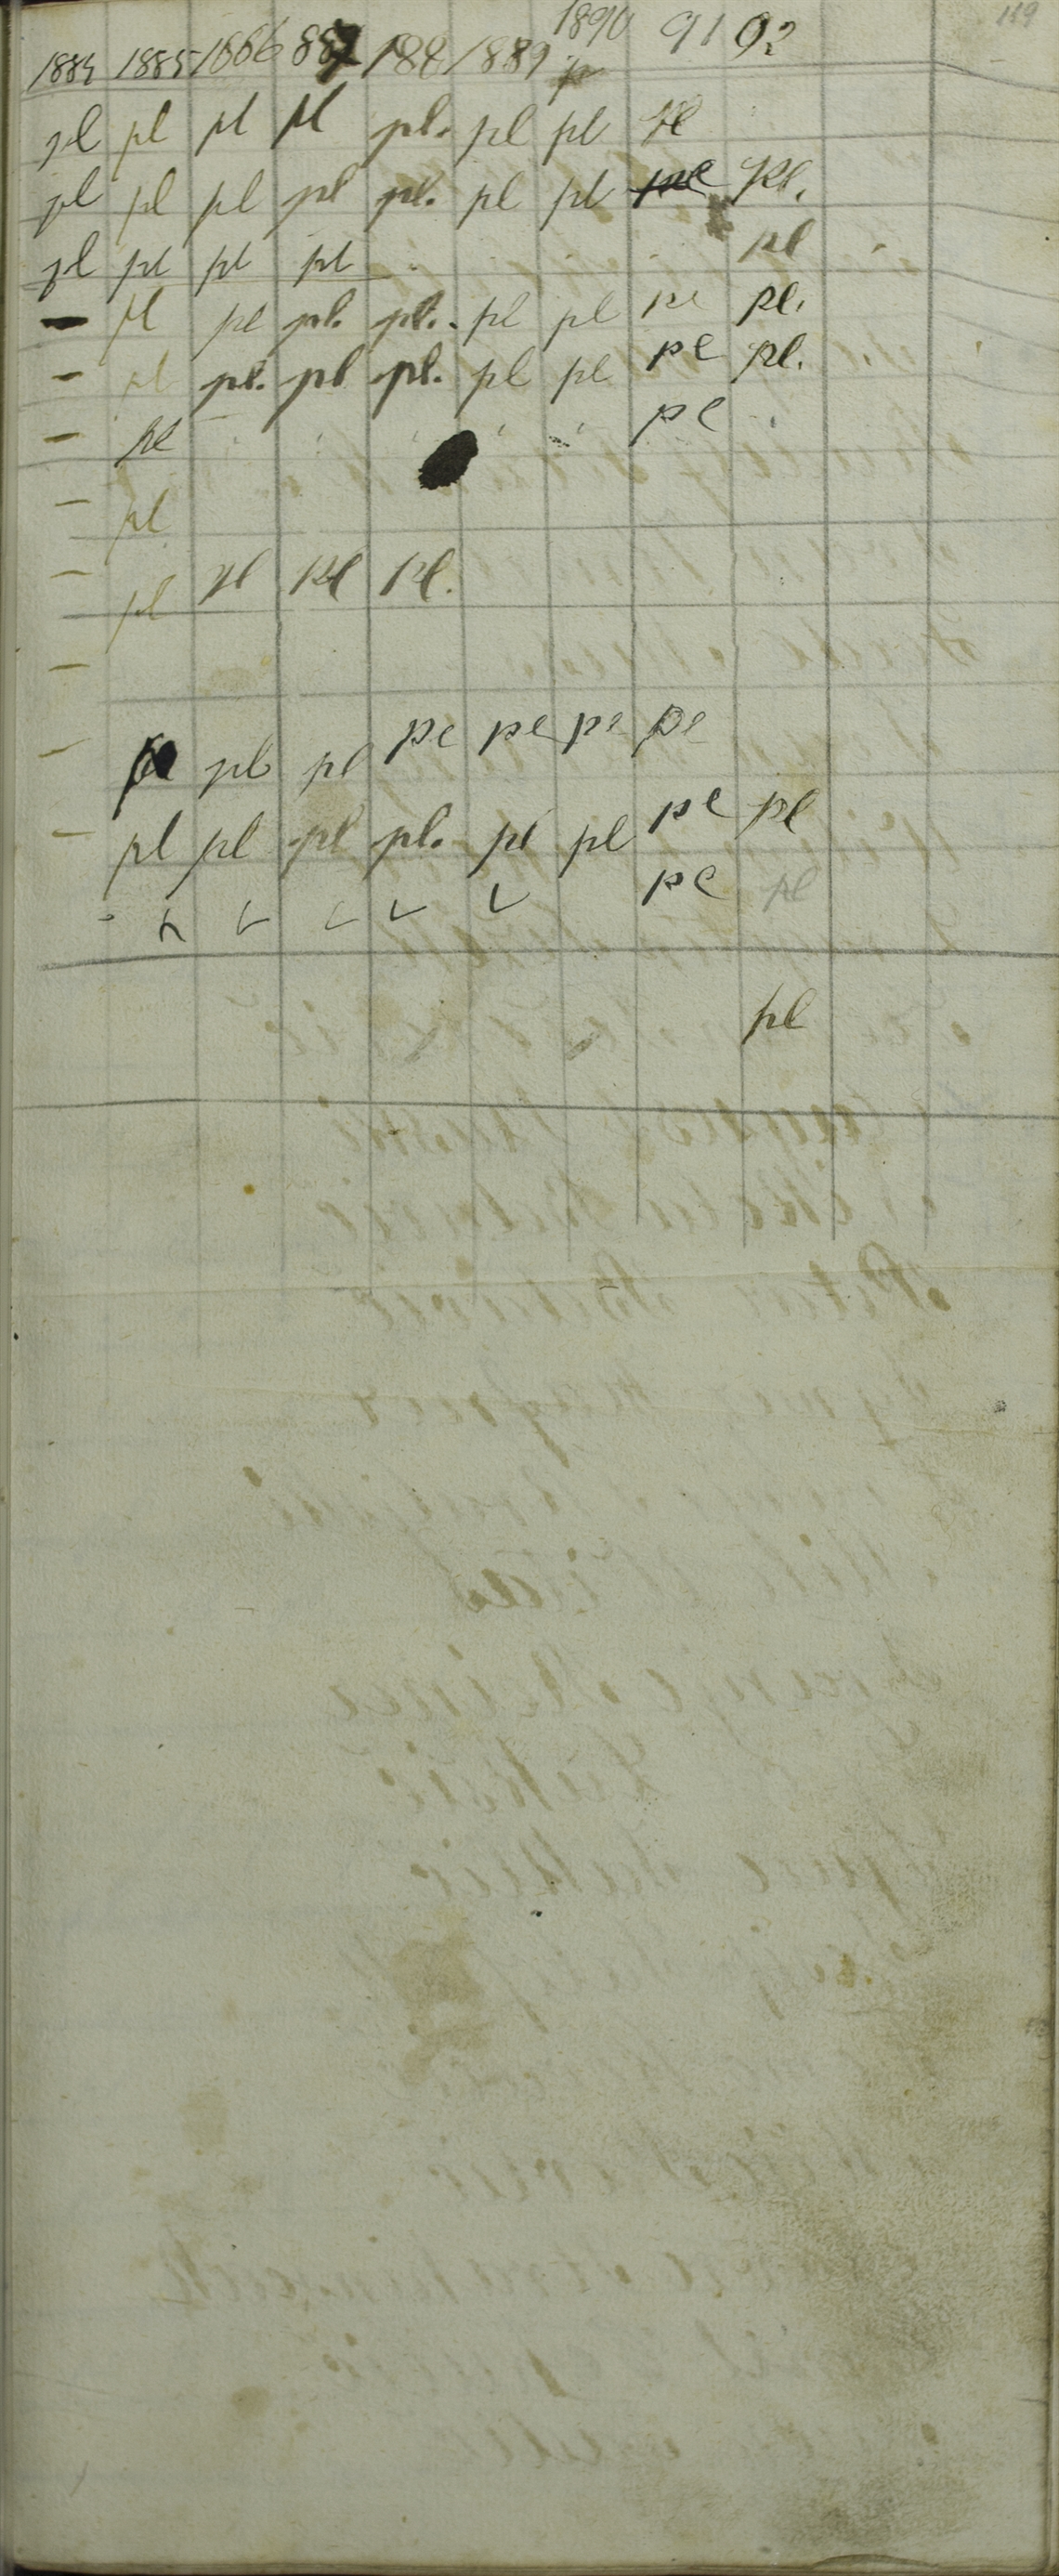 119
1884 1885 1886 887 1888 1889 1890 91 92
p
pl pl pl pl pl. pl pl pl
pl pl pl pl pl. pl pl pl pl.
pl pl pl pl pl
— pl pl pl. pl. pl pl pl pl.
— pl pl. pl pl. pl pl pl pl.
— pl pl
— pl
— pl pl pl pl.
—
— pl pl pl pl pl pl pl
— pl pl pl pl. pl pl pl pl
pl pl
pl